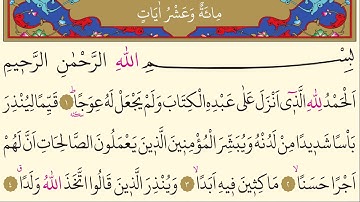 مِائَةٌ وَعَشْرُ اٰيَاتٍ
بِسْمِ اللّٰهِ الرَّحْمٰنِ الرَّح۪يمِ
اَلْحَمْدُ لِلّٰهِ الَّذ۪ٓي اَنْزَلَ عَلٰى عَبْدِهِ الْكِتَابَ وَلَمْ يَجْعَلْ لَهُ عِوَجًاۜ ﴿١﴾ قَيِّمًا لِيُنْذِرَ
بَأْسًا شَد۪يدًا مِنْ لَدُنْهُ وَيُبَشِّرَ الْمُؤْمِن۪ينَ الَّذ۪ينَ يَعْمَلُونَ الصَّالِحَاتِ اَنَّ لَهُمْ
اَجْرًا حَسَنًاۙ ﴿٢﴾ مَاكِث۪ينَ ف۪يهِ اَبَدًاۙ ﴿٣﴾ وَيُنْذِرَ الَّذ۪ينَ قَالُوا اتَّخَذَ اللّٰهُ وَلَدًاۗ ﴿٤﴾